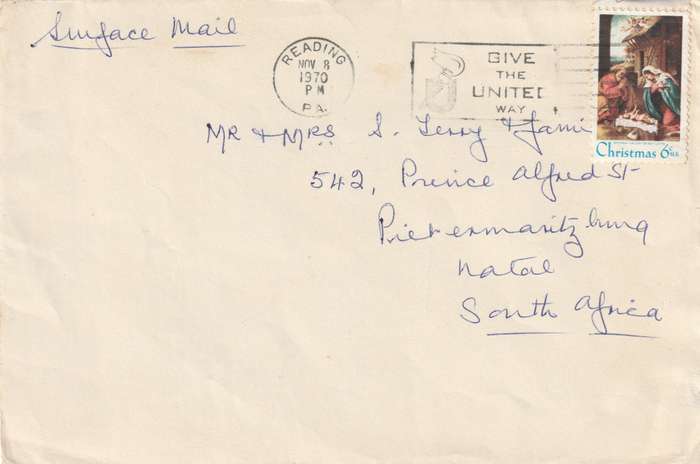 Surface Mail
READING
NOV 8
1970
PM
PA.
GIVE
THE
UNITED
WAY
Christmas 6c U.S.
MR & MRS S. Terry & fami
542, Prince Alfred St
Pietermaritzburg
Natal
South Africa